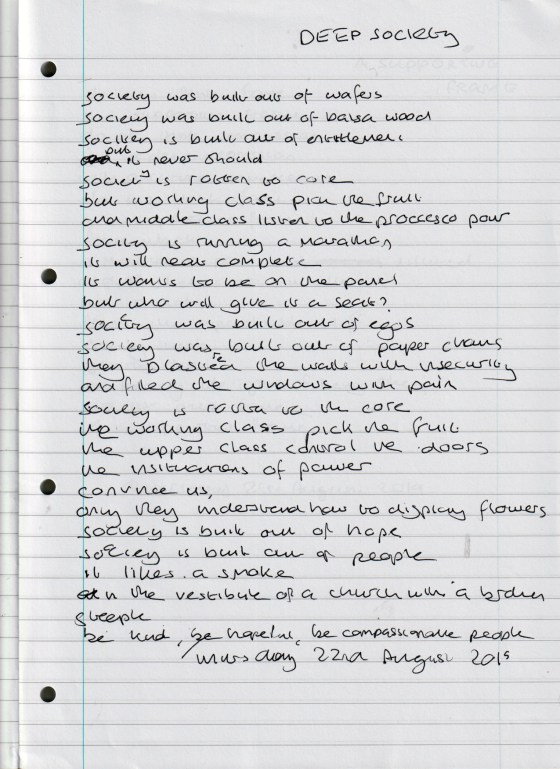 DEEP SOCIETY
society was built out of wafers
society was built out of balsa wood
society is built out of entitlement
but it never should
society is rotten to core
but working class pick the fruit
and middle class listen to the proccesco pour
society is running a marathon
it will near complete
it wants to be on the panel
but who will give it a seat?
society was built out of eggs
society was built out of paper chains
they plastered the walls with insecurity
and filled the windows with pain
society is rotten to the core
the working class pick the fruit
the upper class control the doors
the institutions of power
convince us,
only they understand how to display flowers
society is built out of hope
society is built out of people
it likes a smoke
in the vestibule of a church with a broken
steeple
be kind, be hopeful, be compassionate people
Thursday 22nd August 2019